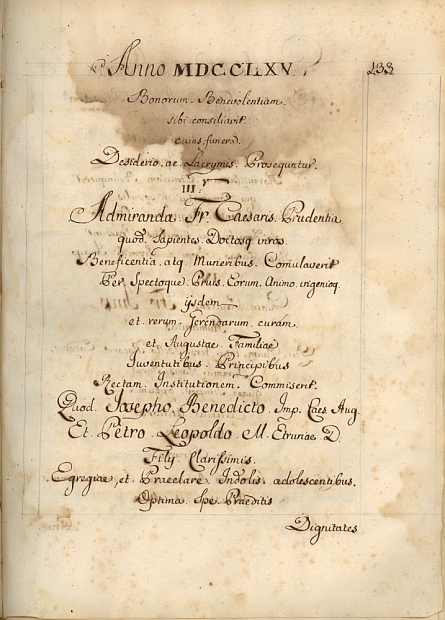 Anno MDCCLXV.
133
Bonorum. Benevolentiam.
sibi conciliavit.
cuius. funera.
Desiderio. ac. Lacrymis. Prosequntur.
III.
Admiranda. Fr. Caesaris. Prudentia
quod. Sapientes. Doctosq. viros.
Beneficentia. atq. Muneribus. Comulaverit
Per Spectoque. Prius. Eorum. Animo. ingenioq.
ijsdem
et. rerum. Gerendarum. curam
et. Augustae. Familiae
Iuventutibus. Principibus
Rectam. Institutionem. Commiserit.
Quod. Iosepho. Benedicto. Imp. Caes. Aug.
Et. Petro. Leopoldo. M. Etruriae. D.
Filij. Clarissimis.
Egregiae, et. Praeclare. Indolis. adolescentibus.
Optima. Spe. Praeditis
Dignitates